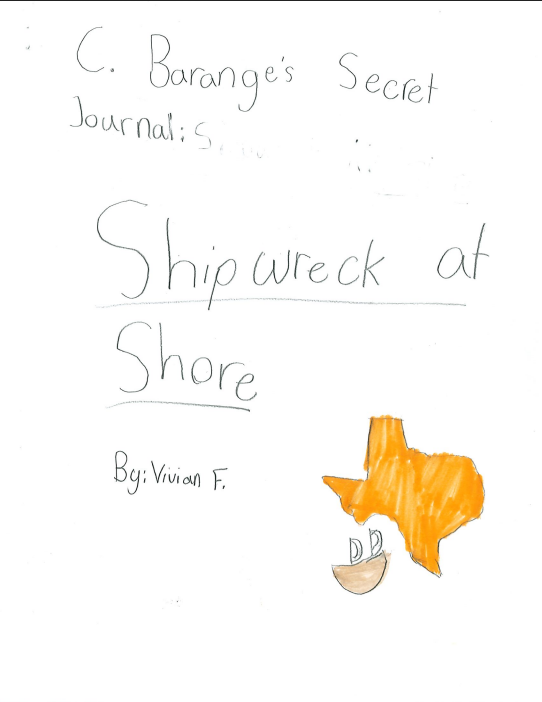 C. Barange's Secret
Journal: S
Shipwreck at
Shore
By: Vivian F.